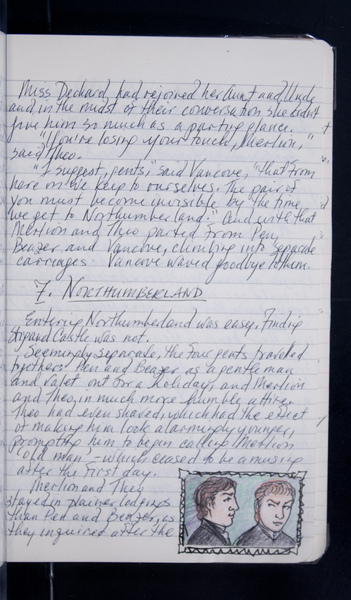 Miss Dechard had rejoined her Aunt and Uncle
and in the midst of their conversation she didn't
give him so much as a parting glance.
"You're losing your touch, Merlion,"
said Theo.
"I suggest, gents," said Vancove, "that from
here on we keep to ourselves. The pair of
you must become invisible by the time
we get to Northumberland." And with that
Merlion and Theo parted from Pen,
Beazer and Vancove, climbing into separate
carriages. Vancove waved goodbye to them.
7. NORTHUMBERLAND
Entering Northumberland was easy. Finding
Castle was not.
Seemingly separate, the four gents traveled
together: Pen and Beazer as a gentleman
and valet out for a holiday, and Merlion
and Theo, in much more humble attire.
Theo had even shaved, which had the effect
of making him look alarmingly younger,
prompting him to begin calling Merlion
"old man" – which ceased to be amusing
after the first day.
Merlion and They
stayed in plainer lodgings
than Pen and Beazer, as
they inquired after the